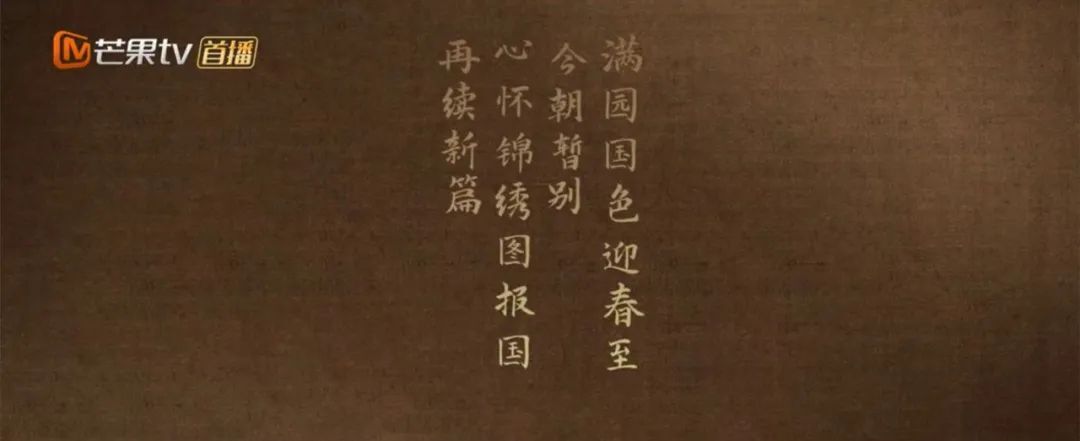 芒果tv 首播
满园国色迎春至
今朝暂别
心怀锦绣图报国
再续新篇